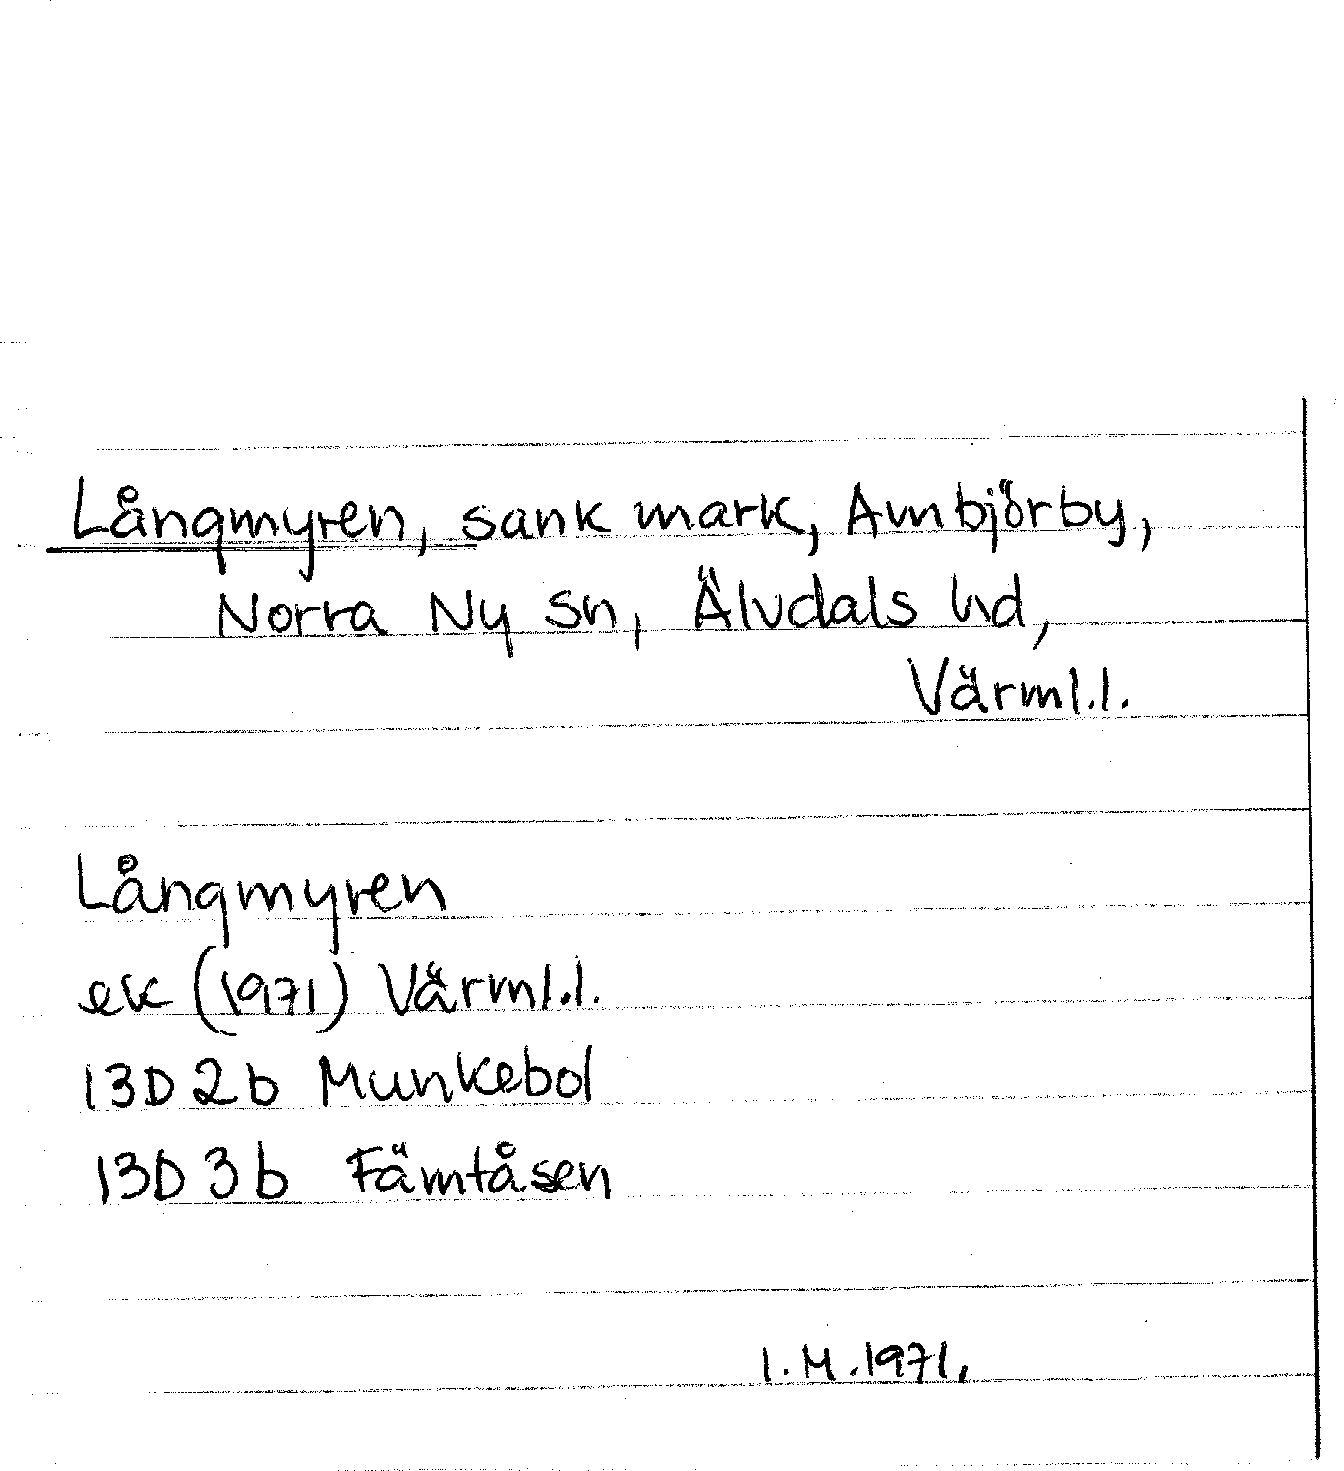 Långmyren, sank mark, Ambjörby,
Norra Ny sn, Älvdals hd,
Värml.l.
Långmyren
ek (1971) Värml.l.
13D 2b Munkebol
13D 3b Fämtåsen
I.M.1971.